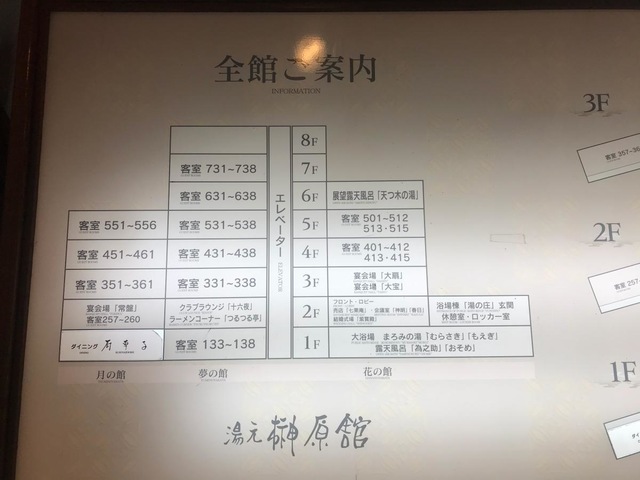 全館ご案内
INFORMATION
8F
客室 731~738
7F
客室 631~638
6F
展望露天風呂「天つ木の湯」
客室 551~556
客室 531~538
5F
客室 501~512
513・515
客室 451~461
客室 431~438
4F
客室 401~412
413・415
客室 351~361
客室 331~338
3F
宴会場「大扇」
宴会場「大宝」
宴会場「常盤」
客室257~260
クラブラウンジ「十六夜」
ラーメンコーナー「つるつる亭」
2F
フロント・ロビー
浴場棟「湯の庄」玄関
休憩室・ロッカー室
ダイニング
客室 133~138
1F
大浴場 まろみの湯「むらさき」「もえぎ」
露天風呂「為之助」「おそめ」
エレベーター
ELEVATOR
月の館
夢の館
花の館
湯元 榊原舘
3F
客室 357~36
2F
客室 257~
1F